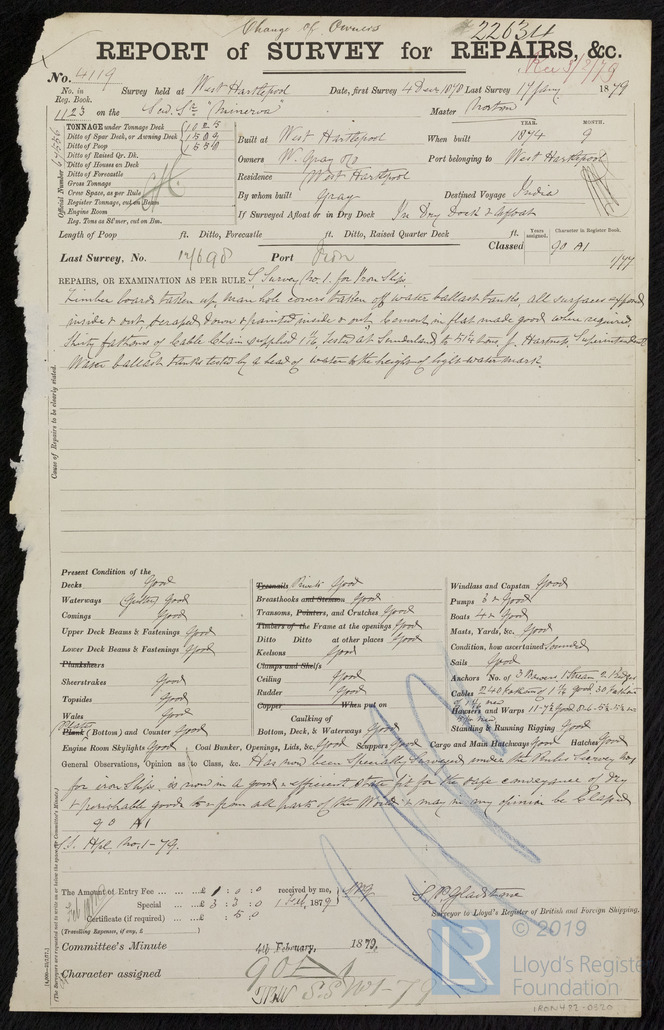 Change of Owners
22634
REPORT of SURVEY for REPAIRS, &c.
No. 4119
Rec 3/2/79
No. in Reg. Book. Survey held at West Hartlepool Date, first Survey 4 Decr 1878 Last Survey 17 Jany 1879
1123 on the Scw. Sr "Minerva" Master
TONNAGE under Tonnage Deck
Ditto of Spar Deck, or Awning Deck
Ditto of Poop
Ditto of Raised Qr. Dk.
Ditto of House on Deck
Ditto of Forecastle
Gross Tonnage
Crew Space, as per Rule
Register Tonnage, cut on Beam
Engine Room
Reg. Tons as St'mer, cut on Bm.
Official Number
Built at West Hartlepool When built YEAR. 1874 MONTH. 9
Owners W. Gray & Co Port belonging to West Hartlepool
Residence West Hartlepool
By whom built Gray Destined Voyage India
If Surveyed Afloat or in Dry Dock In Dry Dock & afloat
Length of Poop ft. Ditto, Forecastle ft. Ditto, Raised Quarter Deck ft. Years assigned. Character in Register Book.
Classed 90 A1
1/77
Last Survey, No. Port Iron
REPAIRS, OR EXAMINATION AS PER RULE S. Survey No. 1. for Iron Ships
Timber boards taken up, man hole covers taken off water ballast tanks, all surfaces exposed
inside & out, scraped down & painted inside & out, Cement in flat made good where required,
thirty fathoms of Cable Chain supplied 1 1/16, tested at Sunderland to tons. J. Hartness Superintendent
Water ballast tanks tested by a head of water to the height of light water mark.
Cause of Repairs to be clearly stated.
Present Condition of the
Decks Good
Waterways (Gutter) Good
Comings Good
Upper Deck Beams & Fastenings Good
Lower Deck Beams & Fastenings Good
Planksheers
Sheerstrakes Good
Topsides Good
Wales Good
Plates Plank (Bottom) and Counter Good
Engine Room Skylights Good
Treenails Rivets Good
Breasthooks and Stemson Good
Transoms, Pointers, and Crutches Good
Timbers of the Frame at the openings Good
Ditto Ditto at other places Good
Keelsons Good
Clamps and Shelfs
Ceiling Good
Rudder Good
Copper When put on
Caulking of
Bottom, Deck, & Waterways Good
Coal Bunker, Openings, Lids, &c. Good Scuppers Good
Windlass and Capstan Good
Pumps 3 Good
Boats 4 Good
Masts, Yards, &c. Good
Condition, how ascertained Sounded
Sails Good
Anchors No. of 3 Bowers, 1 Stream 2 Kedges
Cables 240 Fathoms 1 1/16 Good 30 Fathoms
of 1 1/16 new
Hawsers and Warps
Standing & Running Rigging Good
Cargo and Main Hatchways Good Hatches Good
General Observations, Opinion as to Class, &c. Has now been Specially Surveyed under the Rules Survey No 1
for iron Ships, is now in a good & efficient state fit for the safe conveyance of dry
& perishable goods to & from all parts of the World & may in my opinion be Classed
90 A1
S.S. Hpl. No. 1-79.
The Amount of Entry Fee ... £ 1 : 0 : 0 received by me,
Special ... £ 3 : 3 : 0 1 Feb. 1879
Certificate (if required) ... £ : 5 : 0
(Travelling Expenses, if any, £ )
S. P. Gladstone
Surveyor to Lloyd's Register of British and Foreign Shipping.
Committee's Minute 4th February, 1879.
Character assigned 90 A1
S.S No1-79
© 2019
LR
Lloyd's Register
Foundation
IRON492-0320